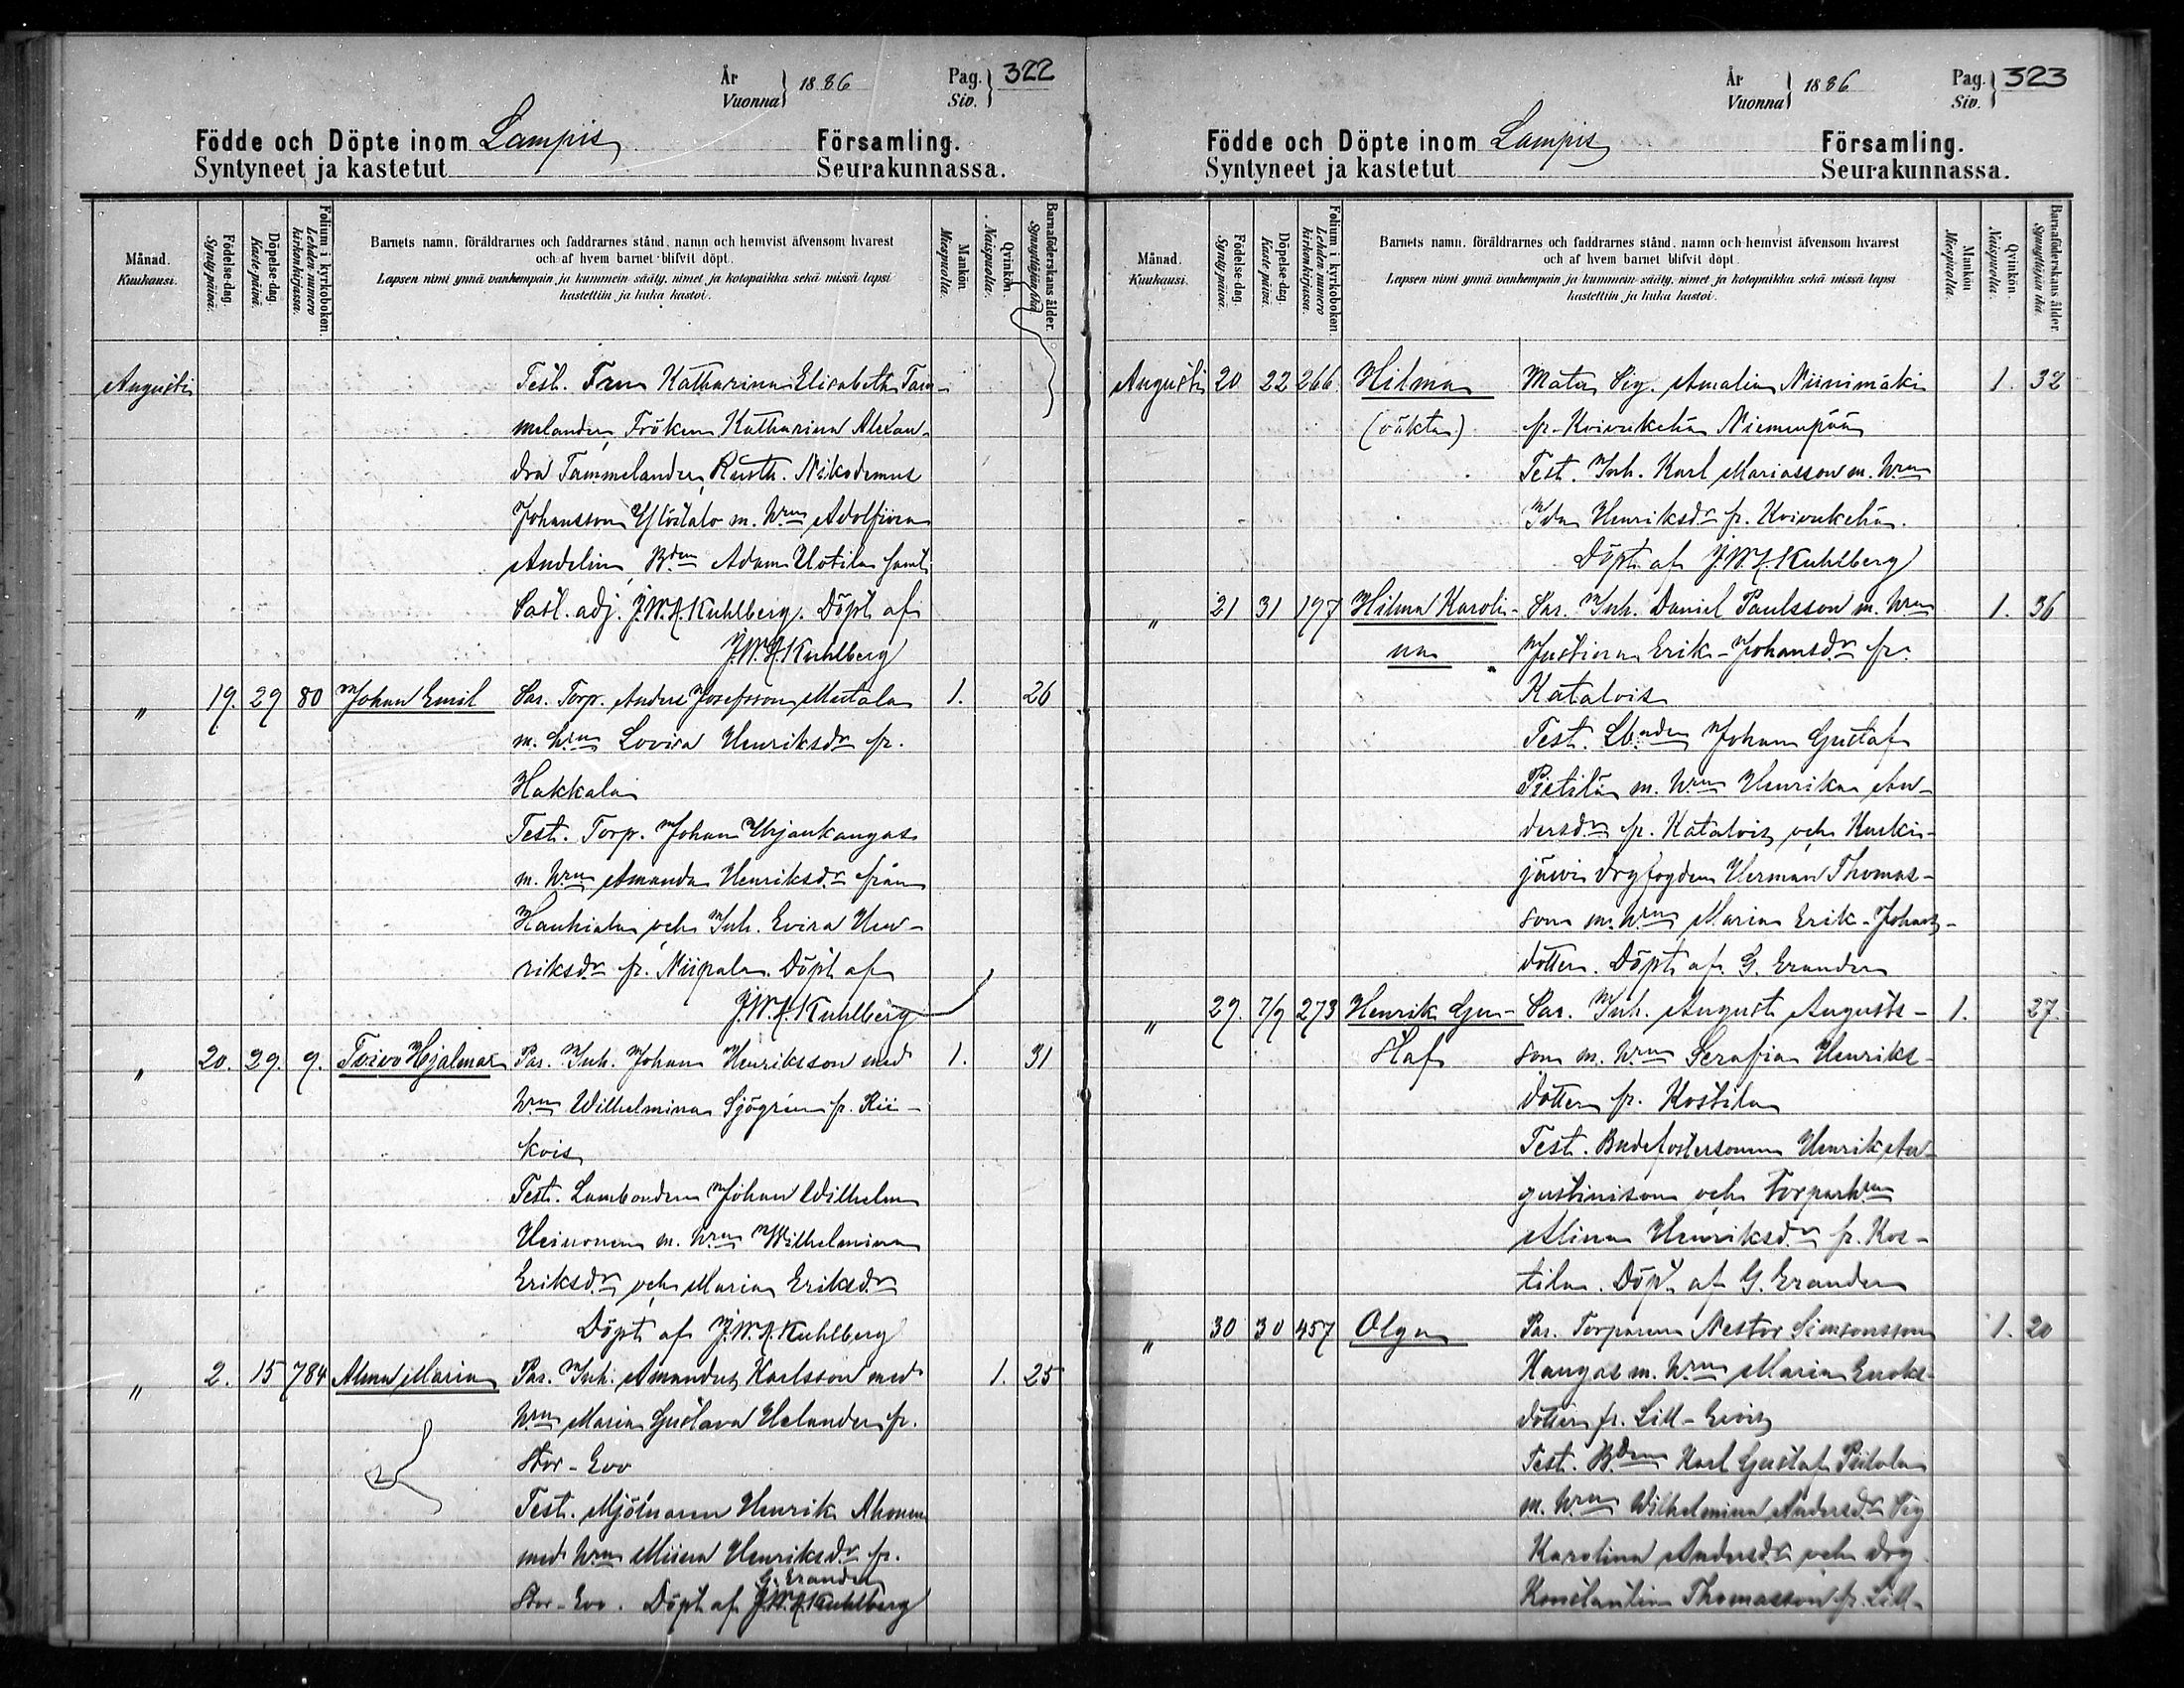 År
Vuonna } 1886
Pag.
Siv. } 322
Födde och Döpte inom Lampis Församling.
Syntyneet ja kastetut Seurakunnassa.
Månad.
Kuukausi.
Födelse-dag.
Synty-päivä.
Döpelse-dag.
Kaste-päivä.
Folium i kyrkoboken.
Lehden numero kirkonkirjassa.
Barnets namn, föräldrarnes och faddrarnes stånd, namn och hemvist äfvensom hvarest
och af hvem barnet blifvit döpt.
Lapsen nimi ynnä vanhempain ja kummein sääty, nimet ja kotopaikka sekä missä lapsi
kastettiin ja kuka kastoi.
Mankön.
Miespuolta.
Qvinkön.
Naispuolta.
Barnaföderskans ålder.
Synnyttäjän ikä.
Augusti Test. Fru Katharina Elisabeth Tam-
melander, Fröken Katharina Alexan-
dra Tammelander, Rusth. Nikodemus
Johansson Ylöstalo m. hrun Adolfina
Andelin, Bden Adam Uotila samt
Past. adj. J.W.A. Kuhlberg. Döpt af
J.W.A. Kuhlberg
" 19. 29 80 Johan Emil Par. Torp. Anders Josefsson Mattala 1. 26
m. hrun Lovisa Henriksdr fr.
Hakkala
Test. Torp. Johan Urjankangas
m. hrun Amanda Henriksdr från
Hauhiala och Inh. Evira Hen-
riksdr fr. Niipala. Döpt af
J.W.A. Kuhlberg
" 20. 29. 9. Toivo Hjalmar Par. Inh. Johan Henriksson med 1. 31
hrun Wilhelmina Sjögren fr. Rii-
kois
Test. Lambonden Johan Wilhelm
Heinonen m. hrun Wilhelmina
Eriksdr och Maria Eriksdr
Döpt af J.W.A. Kuhlberg
" 2. 15 784 Alma Maria Par. Inh. Amandus Karlsson med 1. 25
hrun Maria Gustava Helander fr.
Stor-Evo
Test. Mjölnaren Henrik Ahonen
med hrun Miina Henriksdr fr.
G. Erander
Stor-Evo. Döpt af J.W.A. Kuhlberg
År
Vuonna } 1886
Pag.
Siv. } 323
Födde och Döpte inom Lampis Församling.
Syntyneet ja kastetut Seurakunnassa.
Månad.
Kuukausi.
Födelse-dag.
Synty-päivä.
Döpelse-dag.
Kaste päivä.
Folium i kyrkoboken.
Lehden numero kirkonkirjassa.
Barnets namn, föräldrarnes och faddrarnes stånd, namn och hemvist äfvensom hvarest
och af hvem barnet blifvit döpt.
Lapsen nimi ynnä vanhempain ja kummein sääty, nimet ja kotopaikka sekä missä lapsi
kastettiin ja kuka kastoi.
Mankön
Miespuolta.
Qvinkön.
Naispuolta.
Barnaföderskans ålder.
Synnyttäjän ikä.
Augusti 20 22 266 Hilma Mater Pig. Amalia Niinimäki 1. 32
(oäkta) fr. Koivukehä Niemenpää
Test. Inh. Karl Mariasson m. hrun
Ida Henriksdr fr. Koivukehä.
Döpt af J.W.A. Kuhlberg
" 21 31 197 Hilma Karoli- Par. Inh. Daniel Paulsson m. hrun 1. 36
na Justina Erik-Johansdr fr.
Katalois
Test. Lbnden Johan Gustaf
Pietilä m. hrun Henrika An-
dersdr fr. Katalois och
järvi drgfogden Herman Thomas-
son m. hrun Maria Erik-Johans-
dotter. Döpt af G. Erander
" 29. 7/9 273 Henrik Gu- Par. Inh. August Augusts- 1. 27.
staf son m. hrun Serafia Henriks-
dotter fr. Kostila
Test. Bndefostersonen Henrik Au-
gustinison och Torparhrun
Alina Henriksdr fr. Kos-
tila. Döpt af G. Erander
" 30 30 457 Olga Par. Torparen Nestor Simonsson 1. 20
Kangas m. hrun Maria Enoks-
dotter fr. Lill-Evois
Test. Bden Karl Gustaf Piilola
m. hrun Wilhelmina Andersdr Pig
Karolina Andersdr och drg
Konstantin Thomasson fr. Lill-